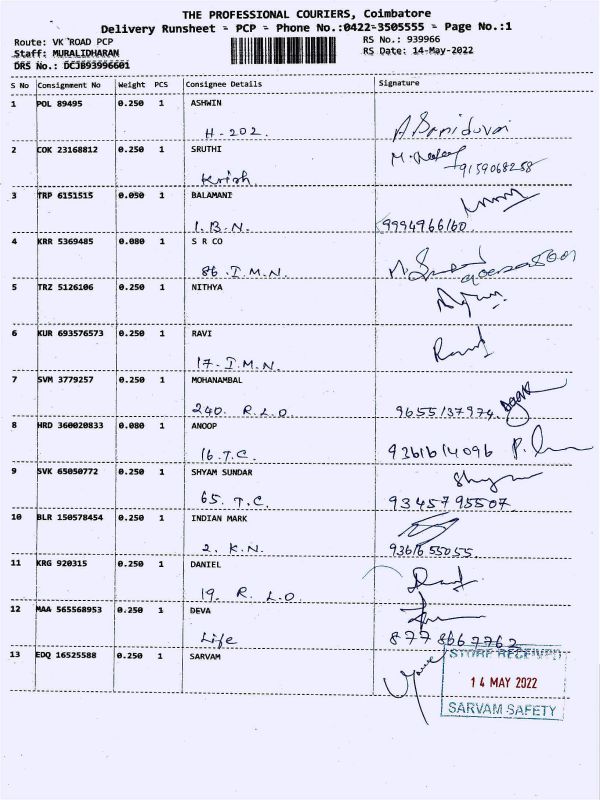 THE PROFESSIONAL COURIERS, Coimbatore
Delivery Runsheet - PCP - Phone No.:0422-3505555 - Page No.:1
Route: VK ROAD PCP RS No.: 939966
Staff: MURALIDHARAN RS Date: 14-May-2022
DRS No.: DCJB93996601
S No Consignment No Weight PCS Consignee Details Signature
1 POL 89495 0.250 1 ASHWIN
H-202.
2 COK 23168812 0.250 1 SRUTHI
Krish. 9159068258
3 TRP 6151515 0.050 1 BALAMANI
1.B.N. 9994966160
4 KRR 5369485 0.080 1 S R CO
86.I.M.N.
5 TRZ 5126106 0.250 1 NITHYA
6 KUR 693576573 0.250 1 RAVI
17-I.M.N.
7 SVM 3779257 0.250 1 MOHANAMBAL
240. R.L.O. 9655137974
8 HRD 360020833 0.080 1 ANOOP
16.T.C. 9361614096
9 SVK 65050772 0.250 1 SHYAM SUNDAR
65. T.C. 9345795507
10 BLR 150578454 0.250 1 INDIAN MARK
2. K.N. 9361655055
11 KRG 920315 0.250 1 DANIEL
19. R.L.O.
12 MAA 565568953 0.250 1 DEVA
Life 8778667762
13 EDQ 16525588 0.250 1 SARVAM
STORE RECEIVED
14 MAY 2022
SARVAM SAFETY